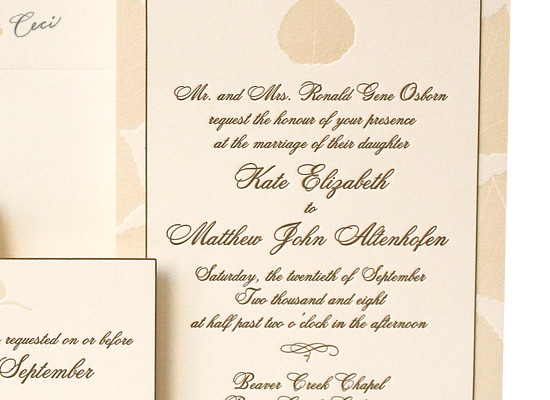 Ceci
Mr. and Mrs. Ronald Gene Osborn
request the honour of your presence
at the marriage of their daughter
Kate Elizabeth
to
Matthew John Altenhofen
Saturday, the twentieth of September
Two thousand and eight
at half past two o'clock in the afternoon
Beaver Creek Chapel
requested on or before
September